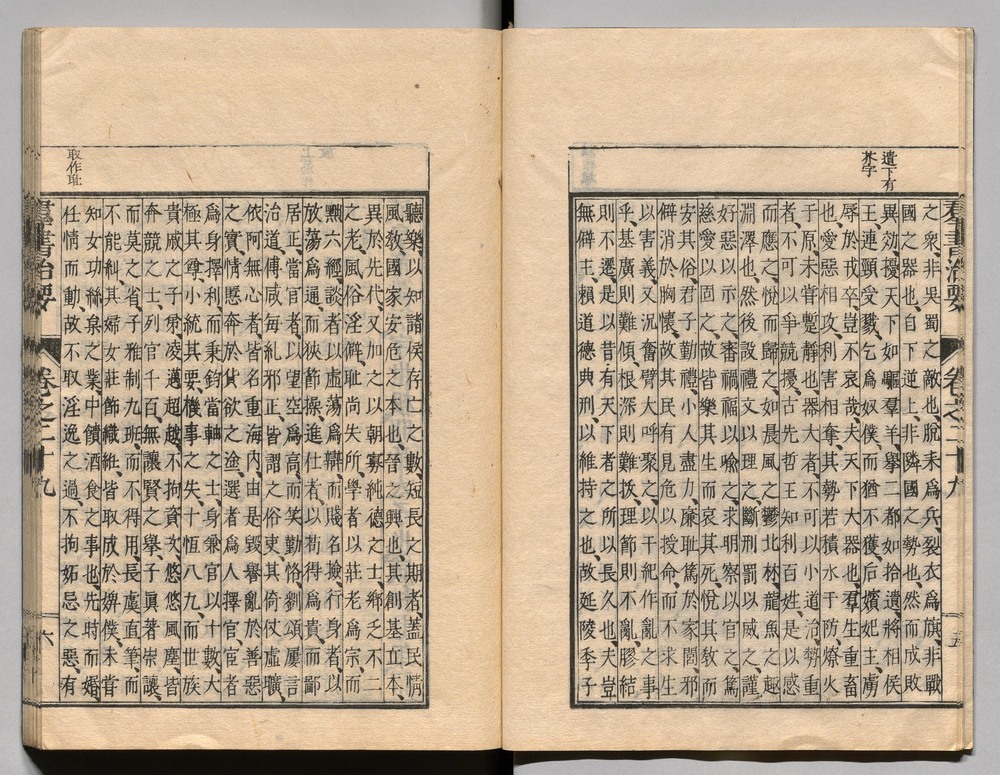 遺下有
芥字
之衆、非吳蜀之敵也、脫耒爲兵、裂衣爲旗、非戰
國之器也、自下逆上、非隣國之勢也、然而成敗
異効、擾天下如驅羣羊、擧二都如拾遺、將相侯
王、連頸受戮、乞爲奴僕、而猶不獲、后嬪妃主、虜
辱於戎卒、豈不哀哉、夫天下大器也、羣生重畜
也、愛惡相攻、利害相奪、其勢若積水于防、燎火
于原、未甞蹔靜也、器大者、不可以小道治、勢重
者、不可以爭競擾、古先哲王、知利百姓、是以感
而應之、悅而歸之、如晨風之鬱北林、龍魚之趣
淵澤也、然後設禮文以理之、斷刑罰以威之、謹
好惡以示之、審禍福以喩之、求明察以官之、篤
慈愛以固之、故皆樂其生而哀其死、悅其敎而
安其俗、君子勤禮、小人盡力、廉耻篤於家閭、邪
僻消於胸懷、故其民有見危以授命、而不求生
以害義、又況奮臂大呼、聚之以干紀作亂之事
乎、基廣則難傾、根深則難拔、理節則不亂、膠結
則不遷、是以昔有天下者之所以長久也、夫豈
無僻主、賴道德典刑以維持之也、故延陵季子
聽樂、以知諸侯存亡之數、短長之期者、蓋民情
風敎、國家安危之本也、晉之興也、其創基立本、
異於先代、又加之以朝寡純德之士、鄕乏不二
之老、風俗淫僻、耻尚失所、學者以莊老爲宗、而
黜六經、談者以虛蕩爲辯、而賤名撿、行身者、以
放蕩爲通、而狹節操、進仕者、以苟得爲貴、而鄙
居正、當官者、以望空爲高、而笑勤恪、劉頌屢言
治道、傅咸每糺邪正、皆謂之俗吏、其倚仗虛曠、
依阿無心者、皆名重海内、由是毀譽亂於善惡
之實、情慝奔於貨欲之塗、選者爲人擇官、官者
爲身擇利、而秉鈞當軸之士、身兼官以十數、大
極其尊、小統其要、機事之失、十恆八九、而世族
貴戚之子弟、凌邁超越、不拘資次、悠悠風塵、皆
奔競之士、列官千百、無讓賢之擧、子眞著崇讓、
而莫之省、子雅制九班、而不得用、長虞直筆、而
不能糾、其婦女莊飾織維、皆取成於婢僕、未甞
知女功絲枲之業、中饋酒食之事也、先時而婚、
仕情而動、故不取淫逸之過、不拘妬忌之惡、有
取作耻
羣書治要 卷之二十九 六